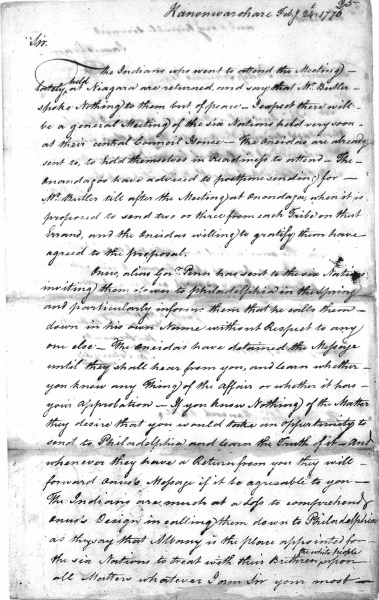 Kanonwarohare Feby 24th 1776
Sir,
The Indians who went to attend the Meeting
lately held at Niagara are returned, and say that Mr. Butler
spoke Nothing to them but of peace — I expect there will
be a general Meeting of the six Nations held very soon
at their central Council House — The Oneidas are already
sent to, to hold themselves in Readiness to attend — The
Onandagas have advised to postpone sending for
Mr. Butler till after the Meeting at Onondaga, when it is
proposed to send two or three from each Tribe on that
Errand, and the Oneidas willing to gratify them have
agreed to the proposal.
Onus, alias Govr. Penn has sent to the six Nations
inviting them down to philadelphia in the Spring
and particularly informs them that he calls them
down in his own Name without Respect to any
one else — The Oneidas have detained the Message
until they shall hear from you, and learn whether
you know any Thing of the Affair or whether it has
your Approbation — If you know Nothing of the Matter
they desire that you would take an oppertunity to
send to Philadelphia and learn the Truth of it — And
whenever they have a Return from you they will
forward Onus's Message if it be agreeable to you —
The Indians are much at a Loss to comprehend
Onus's Design in calling them down to Philadelphia
as they say that Albany is the place appointed for
the six Nations to treat with their Brethren the white people upon
all Matters whatever I am Sir your most —